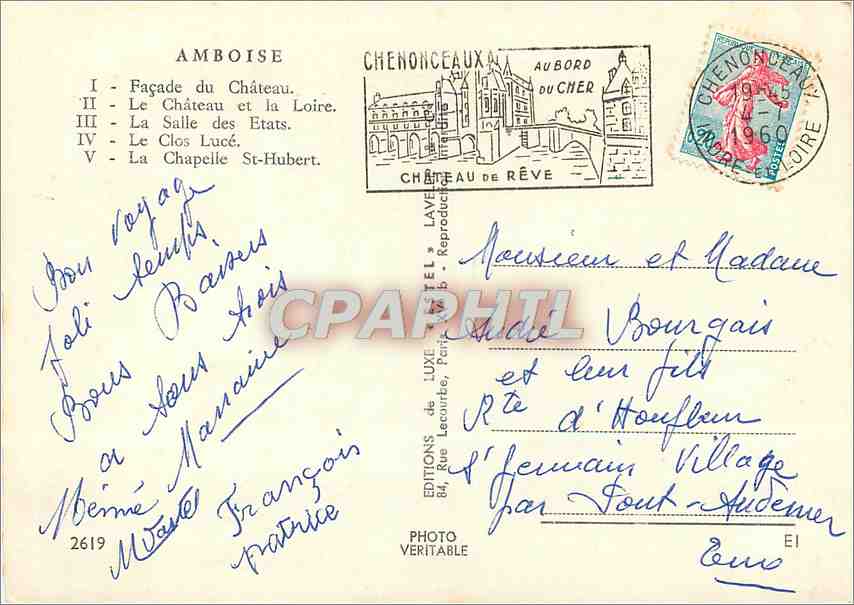 AMBOISE
I - Façade du Château.
II - Le Château et la Loire.
III - La Salle des Etats.
IV - Le Clos Lucé.
V - La Chapelle St-Hubert.
CHENONCEAUX
AU BORD
DU CHER
CHÂTEAU DE RÊVE
REPUBLIQUE
POSTES
CHENONCEAUX
19-45
4-1
1960
INDRE ET LOIRE
Bon voyage
Joli temps
Bons Baisers
a tous trois
Mémé Marraine
François
patrice
2619
EDITIONS de LUXE "ESTEL" LAVELLE
84, Rue Lecourbe, Paris XVe - Reproduction interdite
PHOTO
VERITABLE
CPAPHIL
Monsieur et Madame
André Bourgais
et leur fils
Rte d'Honfleur
St Germain Village
par Pont-Audemer
Eure
EI